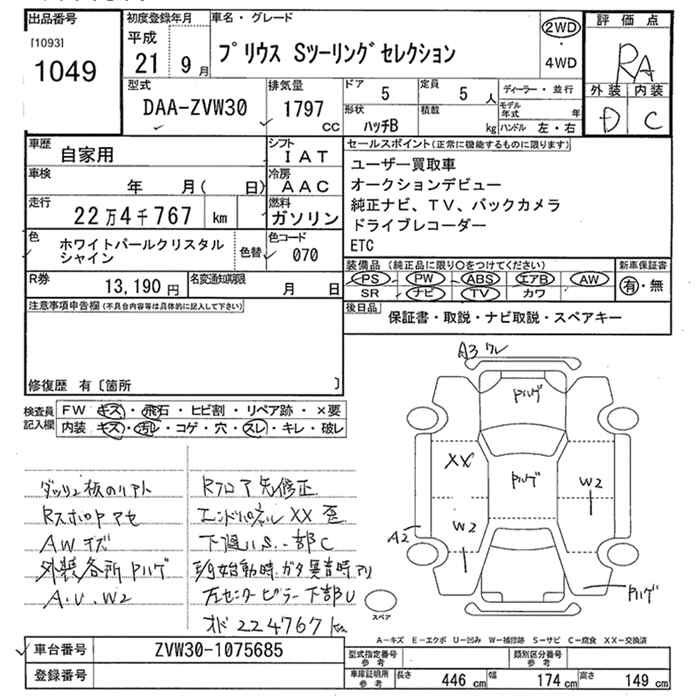 出品番号
[1093]
1049
初度登録年月
平成
21 9月
車名・グレード
プリウス Sツーリングセレクション
2WD
・
4WD
評価点
RA
外装 内装
D C
型式
DAA-ZVW30
排気量
1797
CC
ドア 5
定員 5 人
形状
ハッチB
積載
kg
ディーラー・並行
モデル年式 年
ハンドル 左・右
車歴
自家用
シフト
IAT
車検
年 月( 日)
冷房
AAC
走行
22万4千767 km
燃料
ガソリン
色
ホワイトパールクリスタル
シャイン
色替
色コード
070
R券
13,190 円
名変通知期限
月 日
セールスポイント(正常に機能するものに限ります)
ユーザー買取車
オークションデビュー
純正ナビ、TV、バックカメラ
ドライブレコーダー
ETC
装備品 (純正品に限り○をつけてください)
PS PW ABS エアB AW
SR ナビ TV カワ
新車保証書
有・無
後日品
保証書・取説・ナビ取説・スペアキー
注意事項申告欄(不具合内容等は具体的に記入して下さい)
修復歴 有〔箇所 〕
検査員
記入欄
FW キズ・飛石・ヒビ割・リペア跡・×要
内装 キズ・汚レ・コゲ・穴・スレ・キレ・破レ
A3 ワレ
Pハゲ
XX
Pハゲ
W2
W2
A2
Pハゲ
スペア
AWキズ
外装各所Pハゲ
A.U.W2
Rフロア先修正
エンドパネルXX歪
下廻りS.一部C
始動時ガタ異音時アリ
左センターピラー下部U
224767km
A-キズ E-エクボ U-凹み W-補修跡 S-サビ C-腐食 XX-交換済
車台番号
ZVW30-1075685
登録番号
型式指定番号
参考
類別区分番号
参考
車庫証明用
参考
長さ 446 cm 幅 174 cm 高さ 149 cm